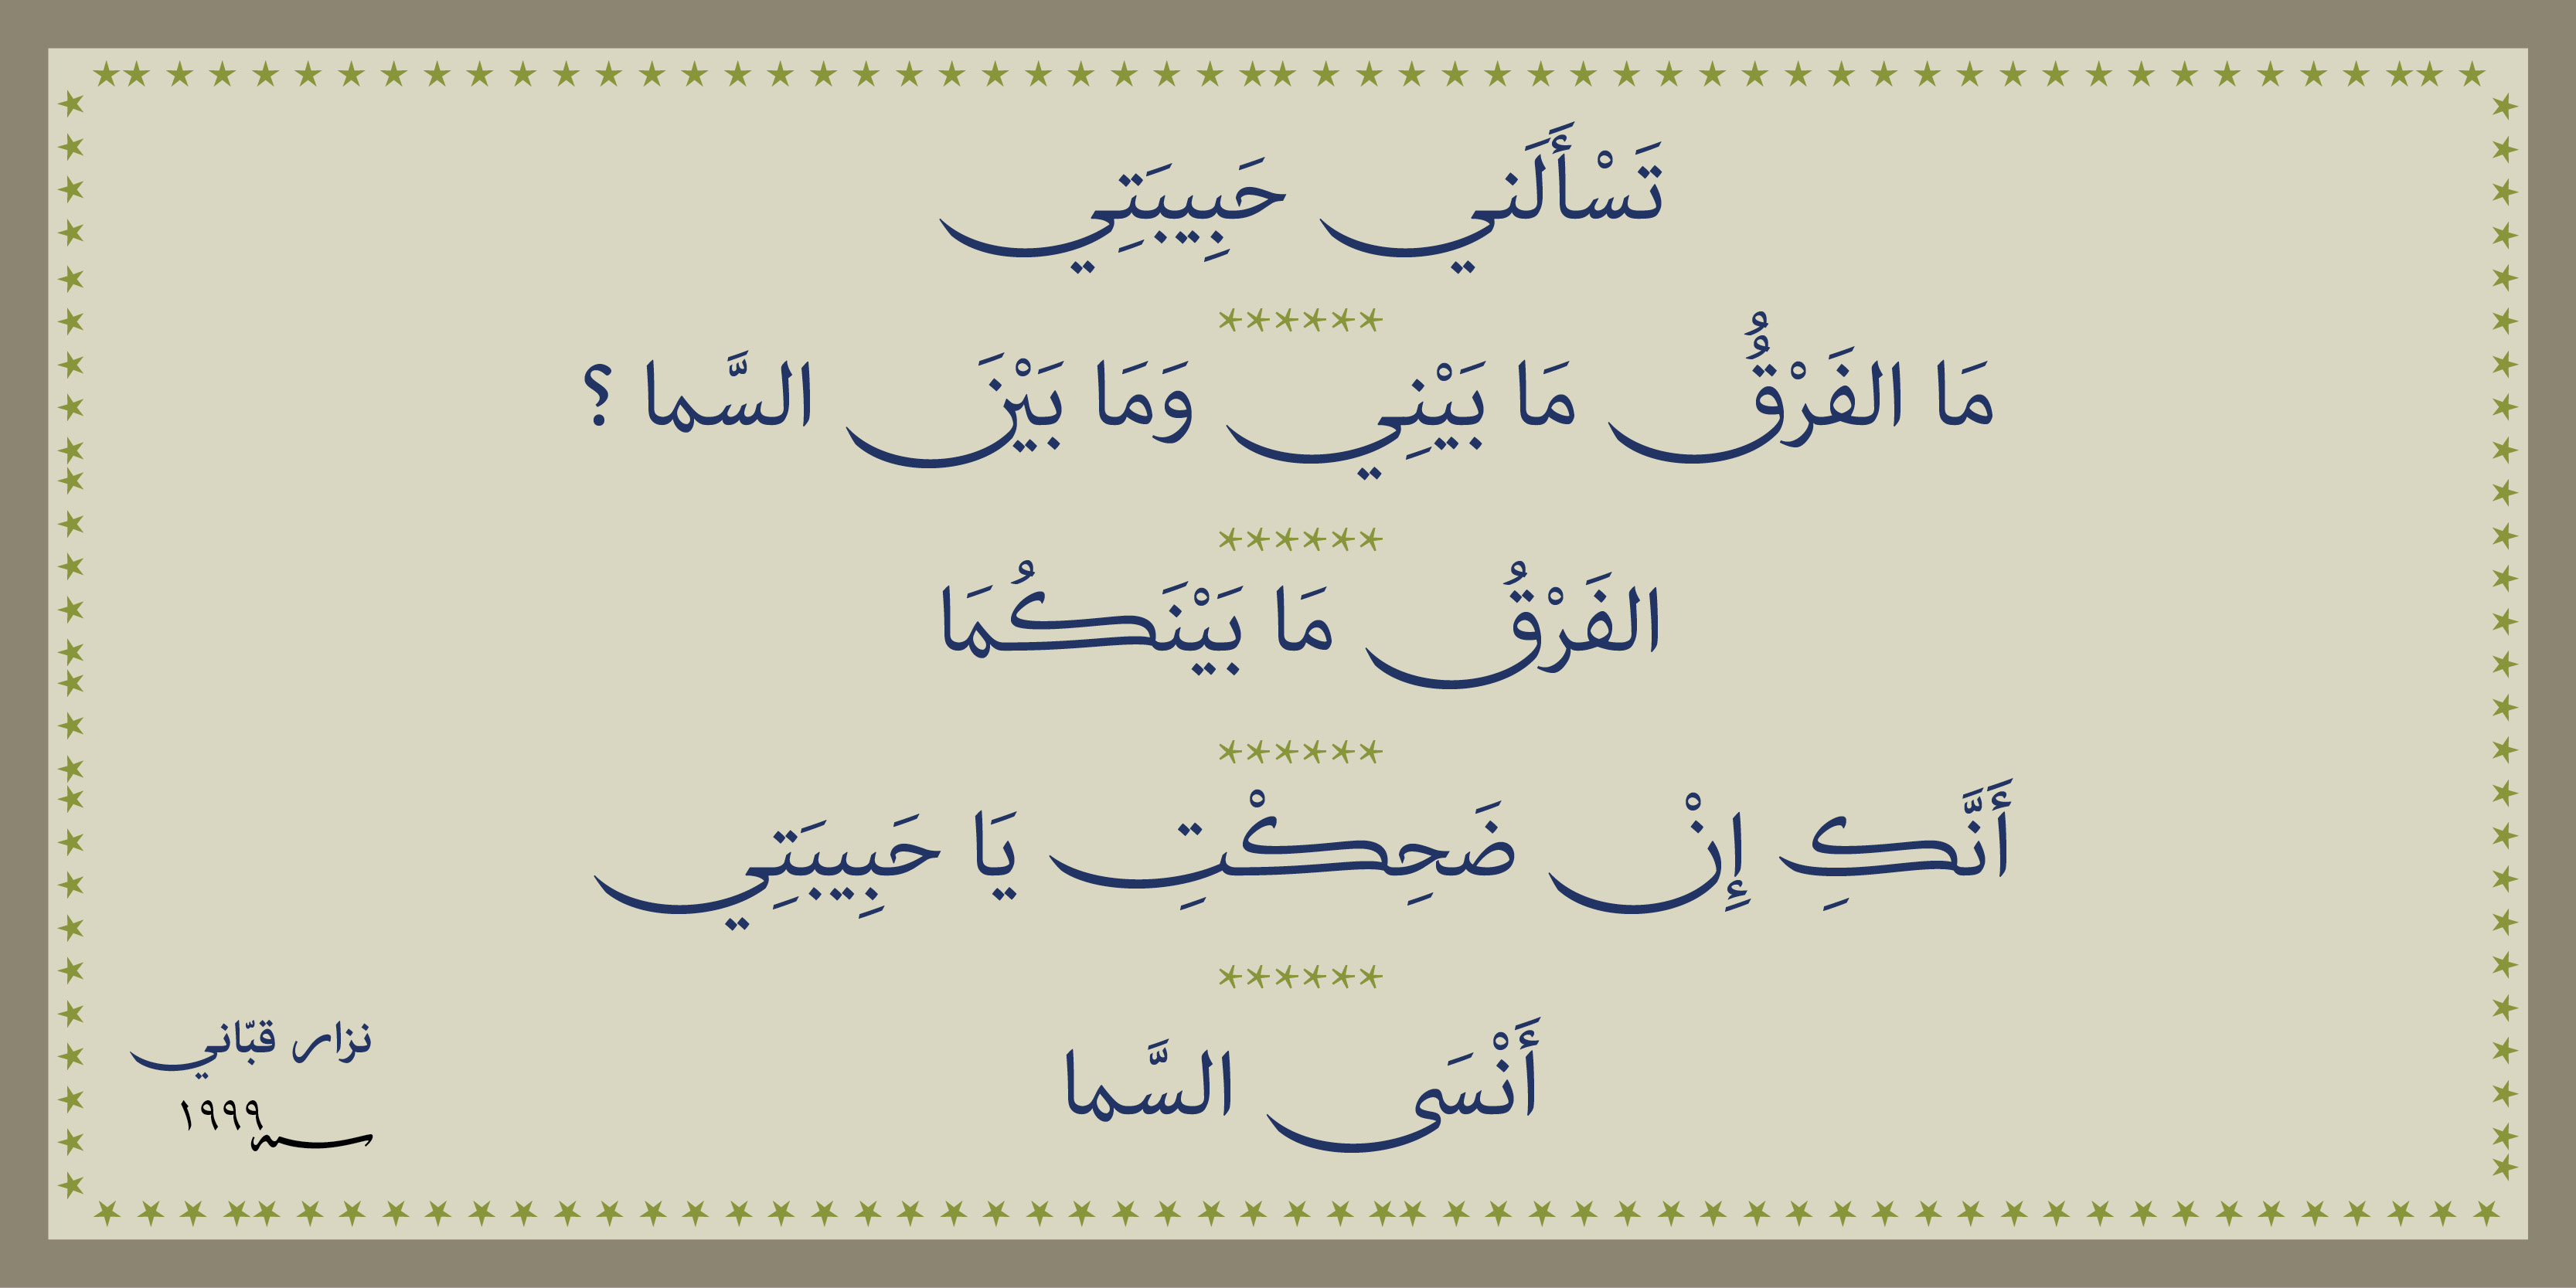 تَسْأَلَني حَبِيبَتِي
******
مَا الفَرْقُُ مَا بَيْنِي وَمَا بَيْنَ السَّما ؟
******
الفَرْقُ مَا بَيْنَكُمَا
******
أَنَّكِ إِنْ ضَحِكْتِ يَا حَبِيبَتِي
******
أَنْسَى السَّما
نزار قبّاني
؁١٩٩٩